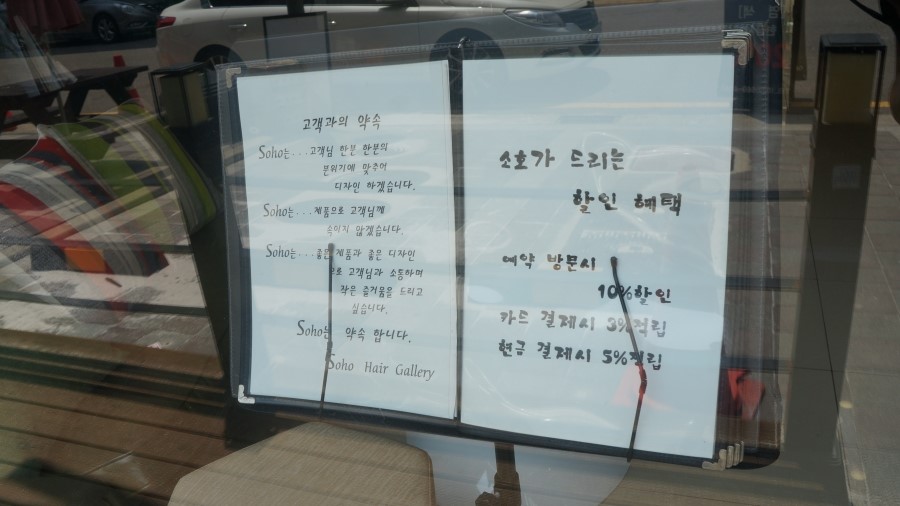 고객과의 약속
Soho는...고객님 한분 한분의
분위기에 맞추어
디자인 하겠습니다.
Soho는...제품으로 고객님께
속이지 않겠습니다.
Soho는...좋은 제품과 좋은 디자인
으로 고객님과 소통하며
작은 즐거움을 드리고
싶습니다.
Soho는 약속 합니다.
Soho Hair Gallery
소호가 드리는
할인 혜택
예약 방문시
10%할인
카드 결제시 3%적립
현금 결제시 5%적립